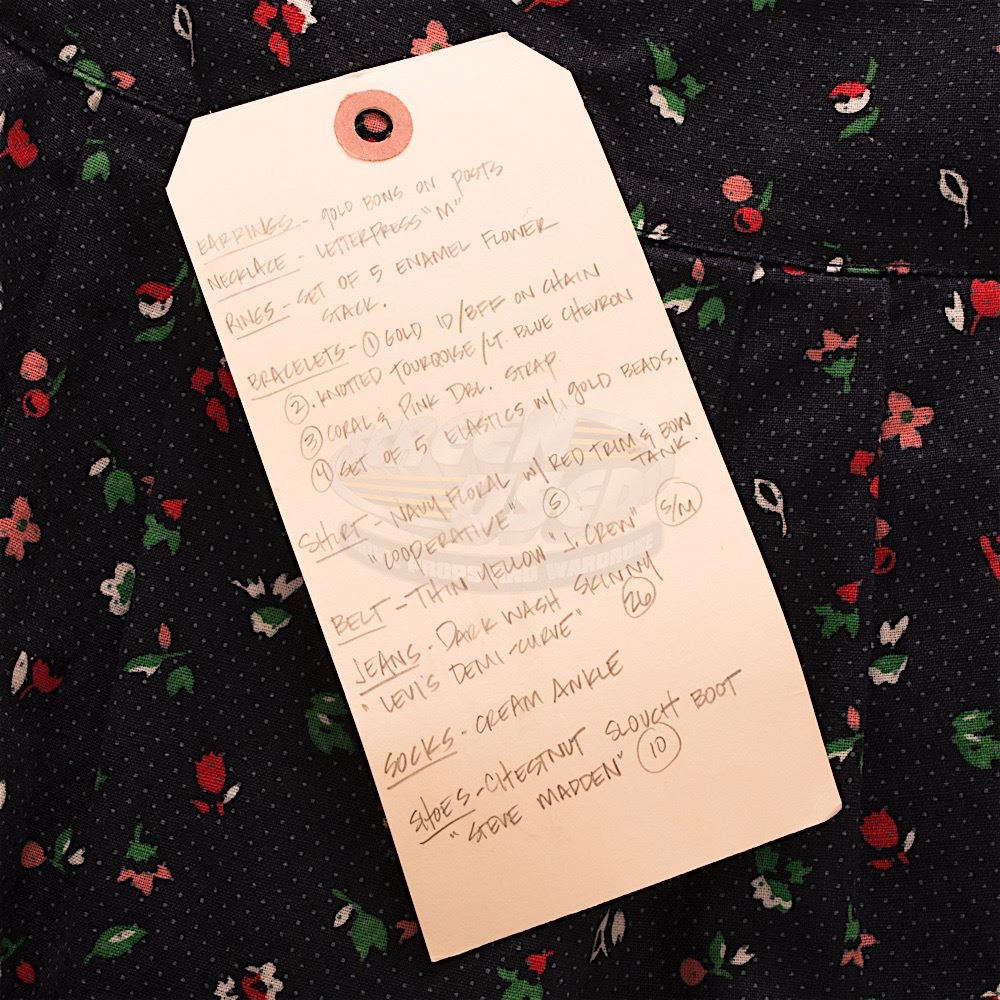 EARRINGS - GOLD BOWS ON POSTS
NECKLACE - LETTERPRESS "M"
RINGS - SET OF 5 ENAMEL FLOWER
STACK.
BRACELETS - ① GOLD ID/BFF ON CHAIN
②. KNOTTED TOURQOISE/LT. BLUE CHEVRON
③ CORAL & PINK DBL. STRAP
④ SET OF 5 ELASTICS W/ GOLD BEADS.
SHIRT - NAVY FLORAL W/ RED TRIM & BOW
TANK.
"COOPERATIVE" Ⓢ
BELT - THIN YELLOW "J. CREW" S/M
JEANS - DARK WASH SKINNY
"LEVI'S DEMI-CURVE" 26
SOCKS - CREAM ANKLE
SHOES - CHESTNUT SLOUCH BOOT
"STEVE MADDEN" 10
SCREEN
USED
PROPS AND WARDROBE